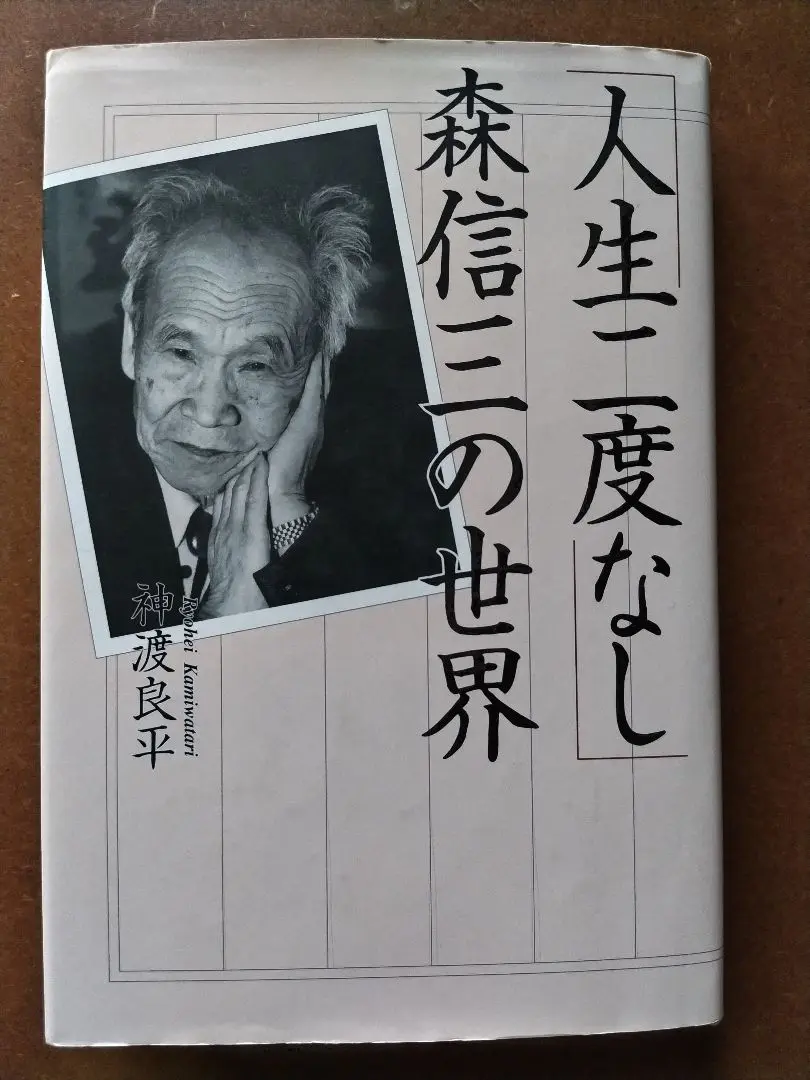 「人生二度なし」
森信三の世界
神渡良平
Ryohei Kamiwatari